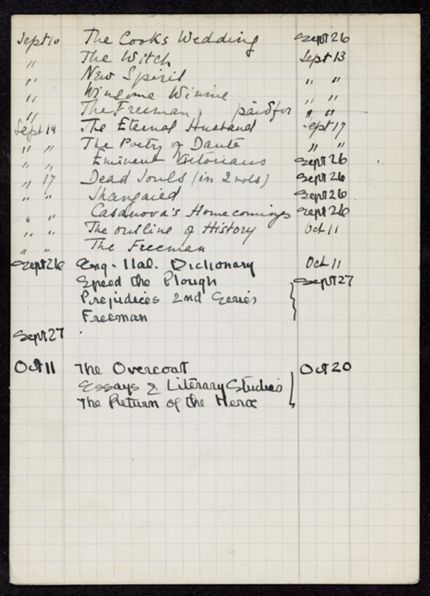 Sept 10 The Cooks Wedding Sept 26
" The Witch Sept 13
" New Spirit " "
" Winsome Winnie " "
" The Freeman, paid for " "
Sept 14 The Eternal Husband Sept 17
" " The Poetry of Dante " "
" " Eminent Victorians Sept 26
" 17 Dead Souls (in 2 vols) Sept 26
" " Shanghaied Sept 26
" " Casanova's Homecoming Sept 26
" " The outline of History Oct 11
" " The Freeman
Sept 26 Eng-Ital. Dictionary Oct 11
Speed the Plough Sept 27
Prejudices 2nd Series
Freeman
Sept 27
Oct 11 The Overcoat Oct 20
Essays & Literary Studies
The Return of the Hero